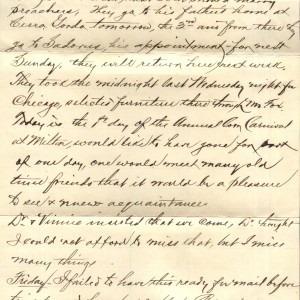 preachers, They go to his father's home at
Cerro Gordo tomorrow, the 2nd and from there they
go to Sadorus, his appointment for next
Sunday, they will return here next week,
They took the midnight last Wednesday night for
Chicago, selected furniture there through Mr Fox.
Today is the 1st day of the Annual Corn Carnival
at Milton, would like to have gone for part
of one day, one would meet many old
time friends that it would be a pleasure
to see & renew acquaintance
Dr & Vinnie insisted that we come, Dr thought
I could not afford to miss that, but I miss
many things.
Friday. I failed to have this ready for mail before